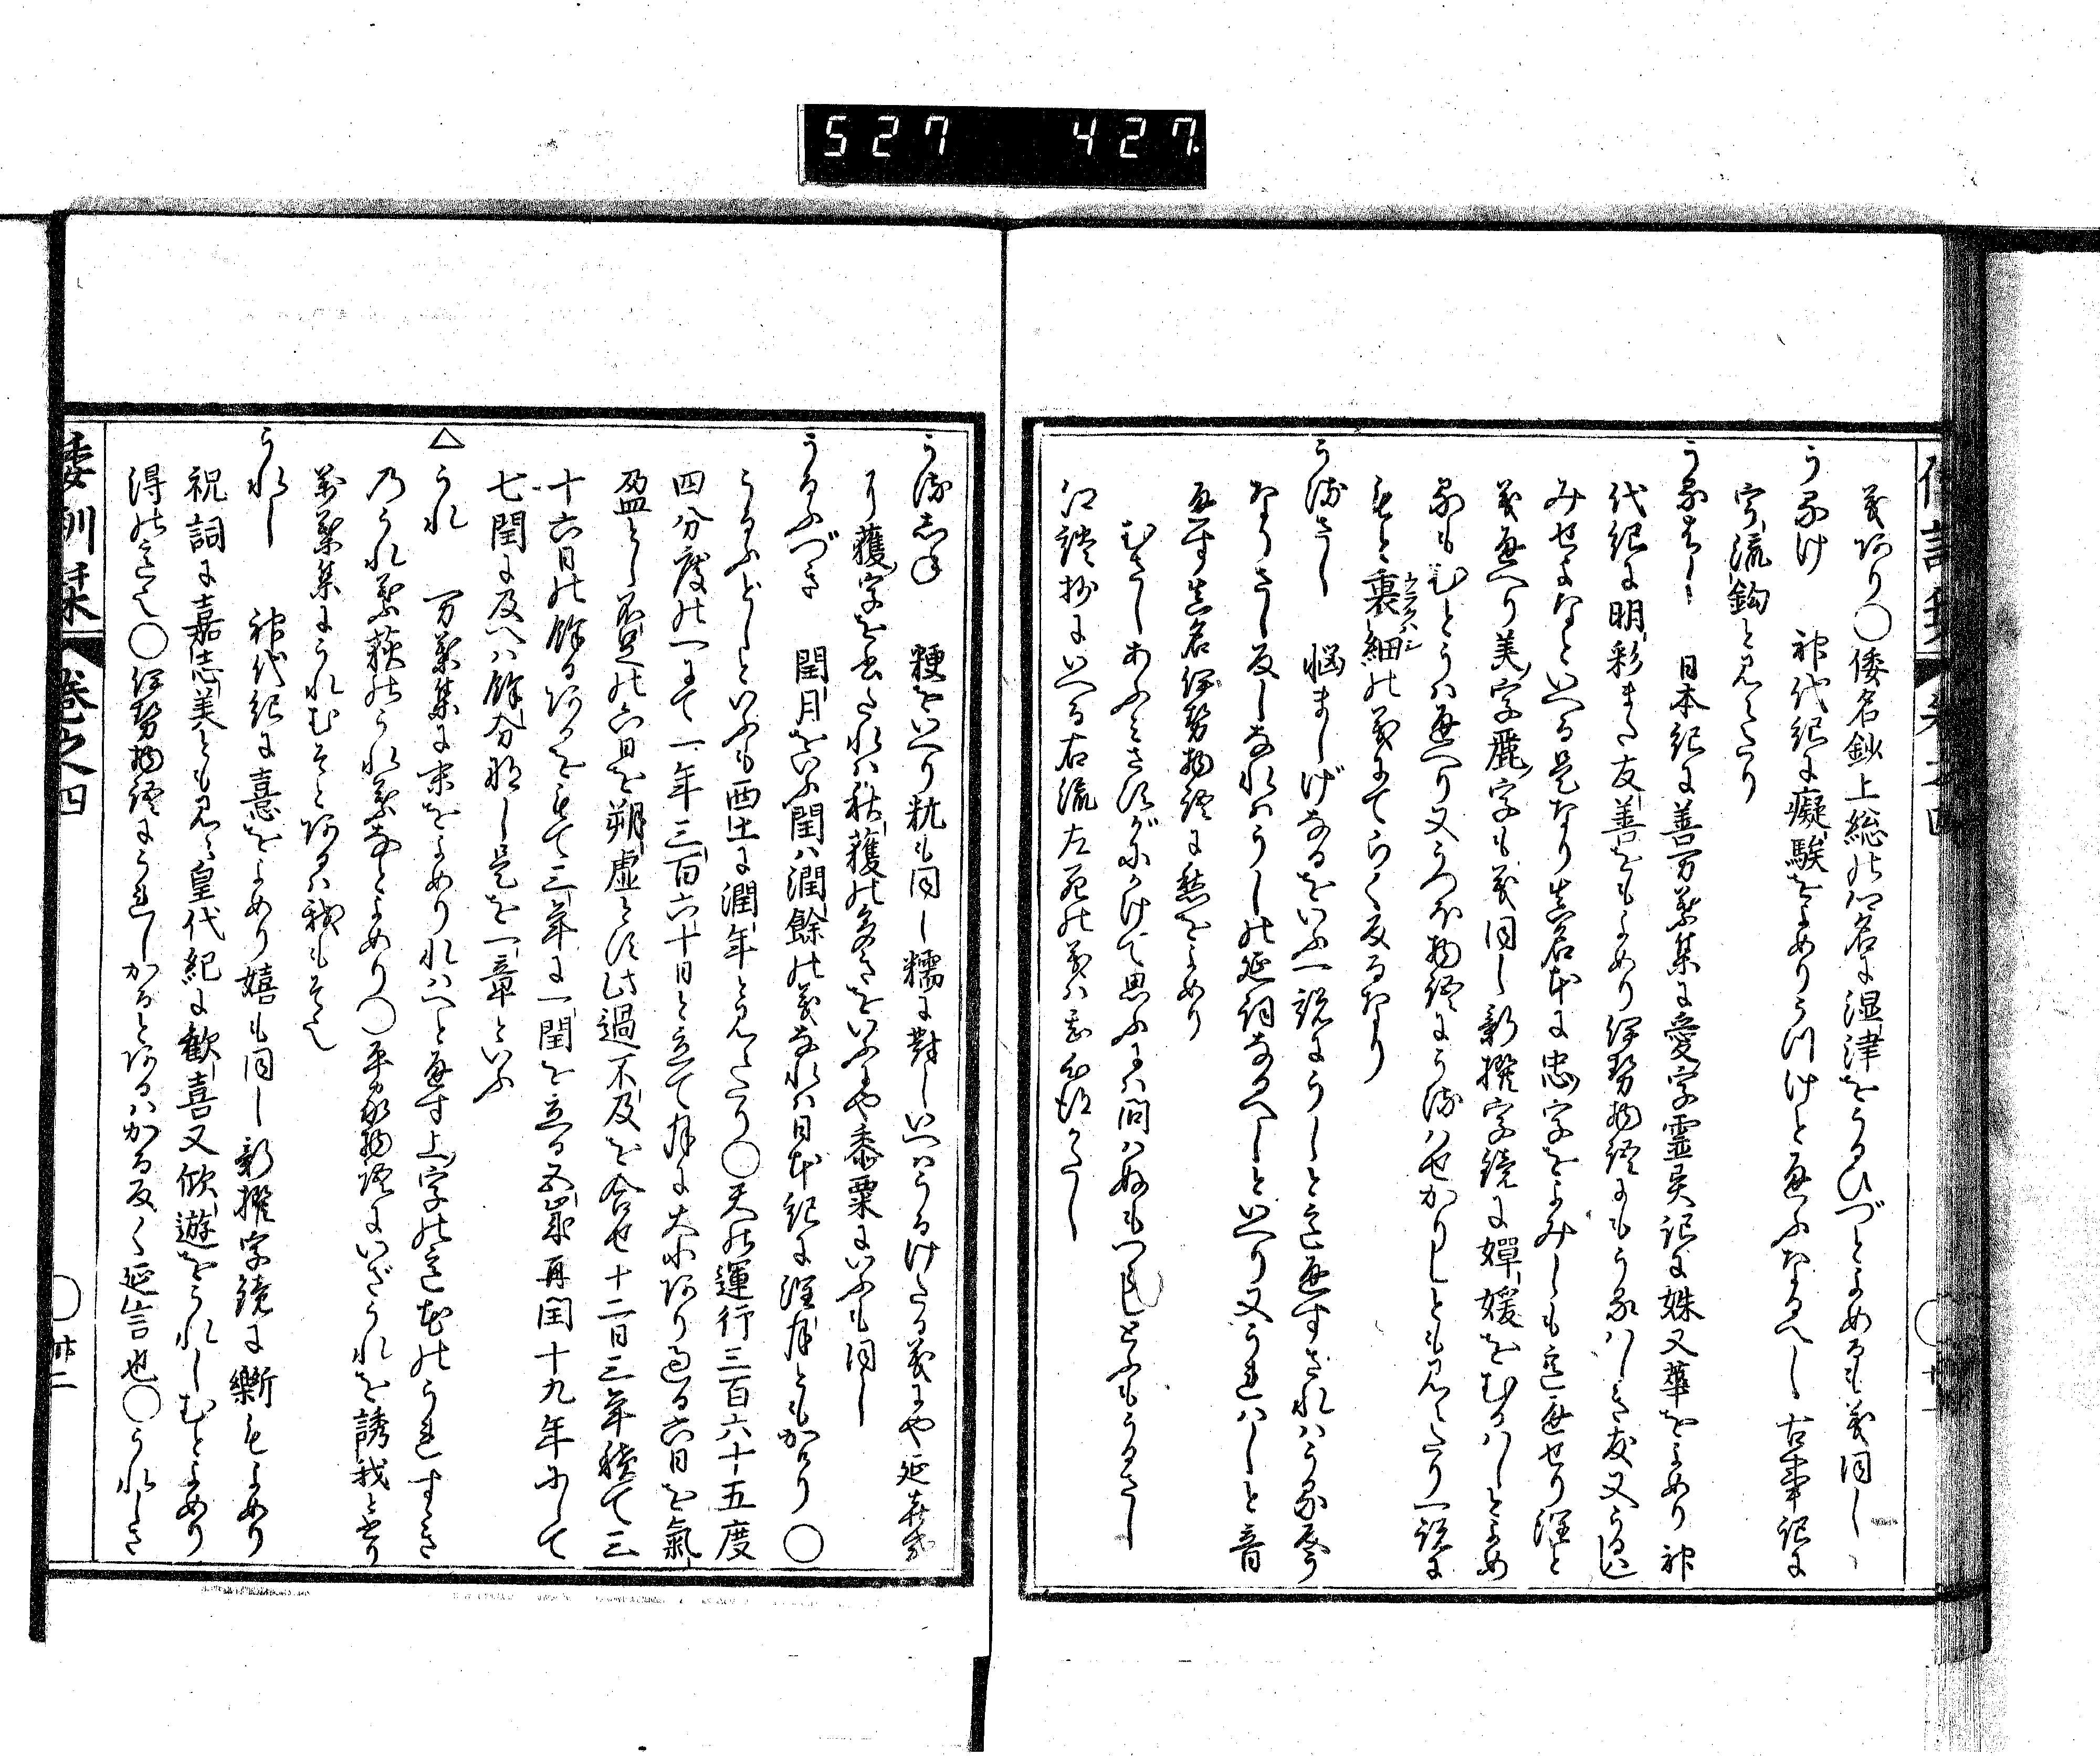 527 427.
義あり○倭名鈔上総の郡名に湿津をうるひづとよめるも義同し
うるけ 神代紀に癡騃をよめりうつけと通ふなるへし古事記に
宇流鉤と見えたり
うるはし 日本紀に善万葉集に愛字霊異記に姝又華をよめり神
代紀に明彩また友善をもよめり伊勢物語にもうるはしき友又うるはし
みせよなといへる是なり真名本に忠字をよみしも意通せり浬と
義通へり美字麗字も義同し新撰字鏡に嬋媛をむるはしとよめ
るもむとうは通へり又うつほ物語にうるはせかりしとも見えたり一説に
もと裏細の義にてらくるなり
ウラクハシ
うるさし 悩ましげなるをいふ一説にうしと意通すされはうる反う
なりさし反しなれはうしの延詞なるへしといへり又うれはしと音
通す真名伊勢物語に愁をよめり
むさしあふみさすがにかけて思ふには問はぬもつらしとふもうるさし
江談抄にいへる右流左死の義は意得かたし
うるしね 粳をいへり秔も同し糯に対しいへはうるけたる義にや延喜式
に穫字を書たれは秋穫の多きをいふにや黍粟にいふも同し
うるふづき 閏月をいふ閏は潤餘の義なれは日本紀に浬月ともかけり○
うるふどしといふも西土に潤年と見えたり○天の運行三百六十五度
四分度の一にて一年三百六十日と立て月に大小あり過る六日を氣
盈とし不足の六日を朔虚とす此過不及を合せ十二日三年積て三
十六日の餘るあるをもて三年に一閏を立る五歳再閏十九年にして
七閏に及へは餘分なし是を一章といふ
△うれ 万葉集に末をよめりれはへと通す上字の意也木のうれすゝき
乃うれ葉萩のうれ葉なとよめり○平家物語にいざうれを誘我と書り
万葉集にうれむそとあるは我もそ也
うれし 神代紀に憙をよめり嬉も同し新撰字鏡に𣂰もよめり
祝詞に嘉志美とも見ゆ皇代紀に歓喜又㰟遊をうれしむとよめり
得の意也○伊勢物語にうれしかるとあるはかる反く延言也○うれしさ
倭訓栞 巻之四 ○ 卅二